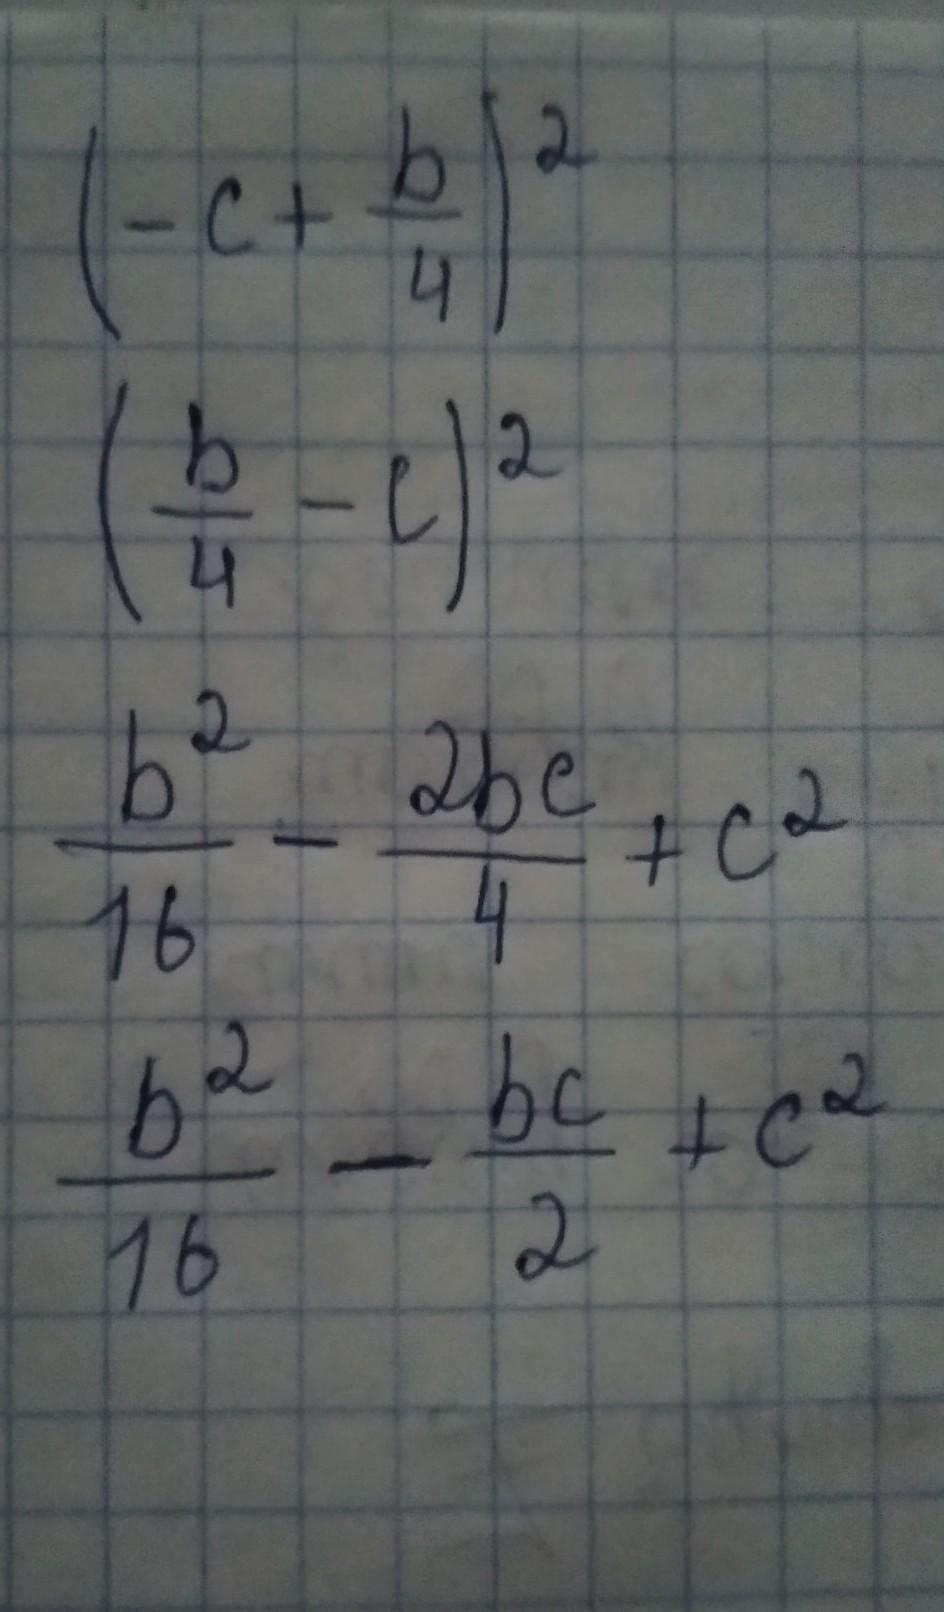 (-c + b/4)²
(b/4 - c)²
b²/16 - 2bc/4 + c²
b²/16 - bc/2 + c²